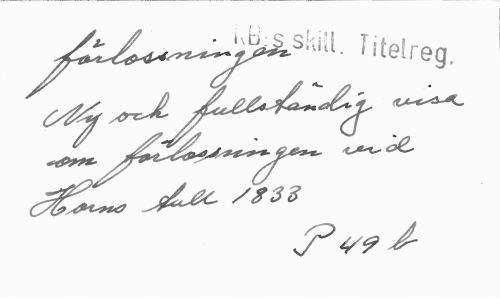 KB:s skill. Titelreg.
förlossningen
Ny och fullständig visa
om förlossningen vid
Horns tull 1833
P 49 b